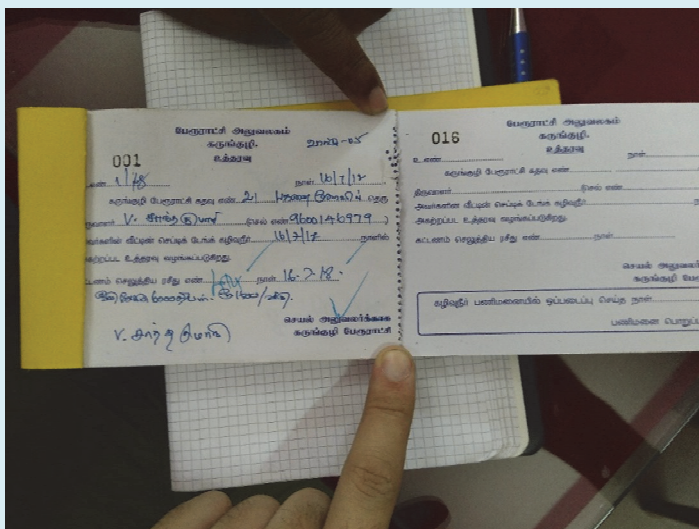 பேரூராட்சி அலுவலகம்
கருங்குழி.
001
உத்தரவு
எண் 1/18 நாள் 16/7/18
கருங்குழி பேரூராட்சி கதவு எண் 21 தெரு
V. (செல் எண் 9600146979)
அவர்களின் வீட்டின் செப்டிக் டேங்க் கழிவுநீர் 16/7/18 நாளில்
அகற்றப்பட உத்தரவு வழங்கப்படுகிறது.
கட்டணம் செலுத்திய ரசீது எண் நாள் 16.7.18.
செயல் அலுவலர்க்காக
கருங்குழி பேரூராட்சி
V.
பேரூராட்சி அலுவலகம்
கருங்குழி.
016
உத்தரவு
உ.எண் நாள்
கருங்குழி பேரூராட்சி கதவு எண்
திருவாளர் (செல் எண்
அவர்களின் வீட்டின் செப்டிக் டேங்க் கழிவுநீர்
அகற்றப்பட உத்தரவு வழங்கப்படுகிறது.
கட்டணம் செலுத்திய ரசீது எண் நாள்
செயல் அலுவலர்
கருங்குழி பேரூ
கழிவுநீர் பணிமனையில் ஒப்படைப்பு செய்த நாள்
பணிமனை பொறுப்